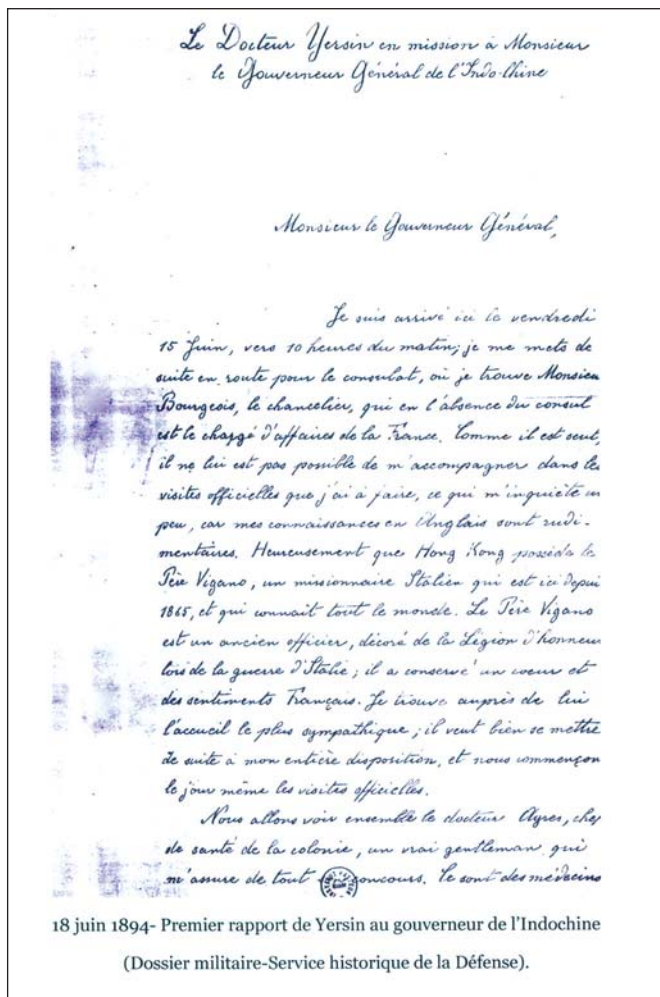 Le Docteur Yersin en mission à Monsieur
le Gouverneur Général de l'Indo-Chine
Monsieur le Gouverneur Général,
Je suis arrivé ici le vendredi
15 Juin, vers 10 heures du matin; je me mets de
suite en route pour le consulat, où je trouve Monsieu
Bourgeois, le chancelier, qui en l'absence du consul
est le chargé d'affaires de la France. Comme il est seul,
il ne lui est pas possible de m'accompagner dans les
visites officielles que j'ai à faire, ce qui m'inquiète un
peu, car mes connaissances en Anglais sont rudi-
mentaires. Heureusement que Hong Kong possède le
Père Vigano, un missionnaire Italien qui est ici depui
1865, et qui connait tout le monde. Le Père Vigano
est un ancien officier, décoré de la Légion d'honneu
lors de la guerre d'Italie; il a conservé un coeur et
des sentiments Français. Je trouve auprès de lui
l'accueil le plus sympathique; il veut bien se mettre
de suite à mon entière disposition, et nous commençon
le jour même les visites officielles.
Nous allons voir ensemble le docteur Ayres, chef
de santé de la colonie, un vrai gentleman qui
m'assure de tout concours. Ce sont des médecins
18 juin 1894- Premier rapport de Yersin au gouverneur de l'Indochine
(Dossier militaire-Service historique de la Défense).